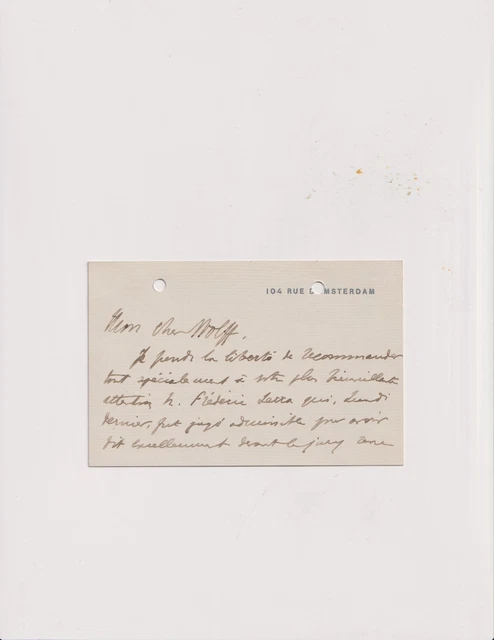 104 RUE D'AMSTERDAM
Mon cher Wolff,
Je prends la liberté de recommander
tout spécialement à votre plus bienveillante
attention M. Frédéric qui, Lundi
dernier, fut jugé admissible pour avoir
dit excellemment devant le jury une